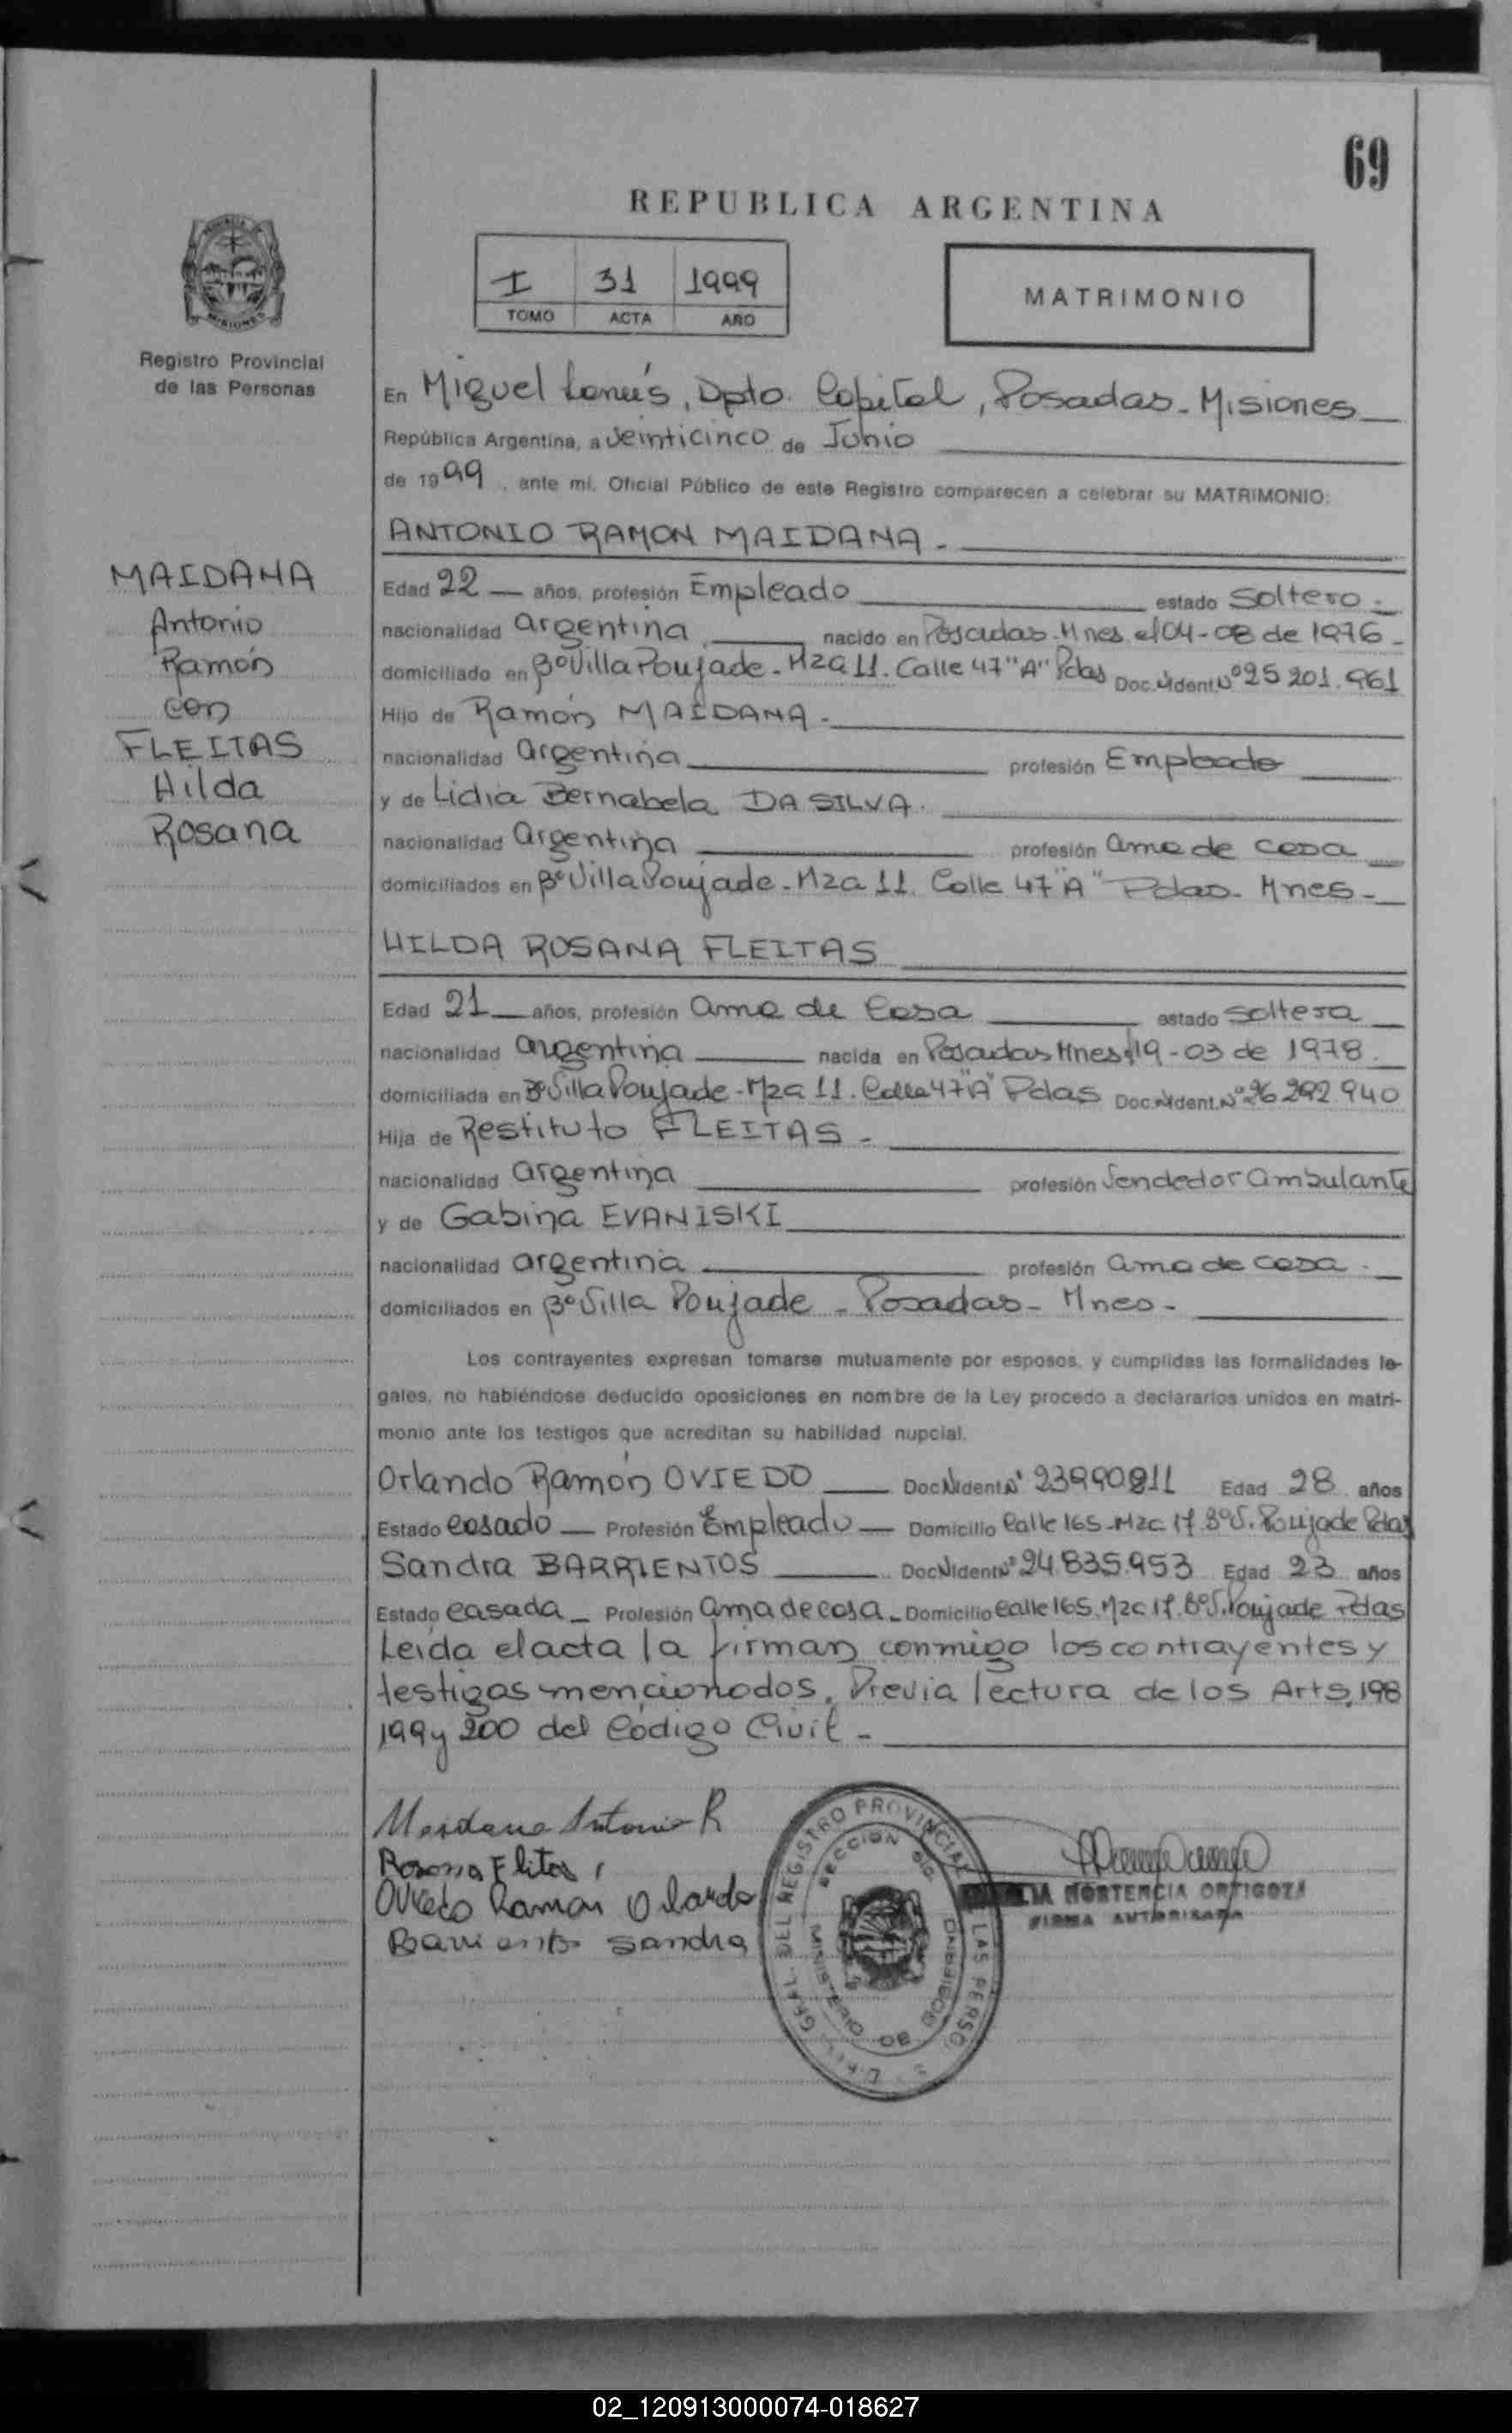 69
REPUBLICA ARGENTINA
I 31 1999
TOMO ACTA AÑO
MATRIMONIO
MISIONES
Registro Provincial
de las Personas
En Miguel Lanús, Dpto. Capital, Posadas - Misiones
República Argentina, a veinticinco de Junio
de 1999, ante mí, Oficial Público de este Registro comparecen a celebrar su MATRIMONIO:
ANTONIO RAMON MAIDANA -
MAIDANA
Antonio
Ramón
con
FLEITAS
Hilda
Rosana
Edad 22 años, profesión Empleado estado Soltero -
nacionalidad argentina nacido en Posadas - Mnes el 04-08 de 1976 -
domiciliado en Bº Villa Poujade - Mza 11. Calle 47 "A" Pdas Doc. Ident. Nº 25 201.961
Hijo de Ramón MAIDANA -
nacionalidad argentina profesión Empleado
y de Lidia Bernabela DA SILVA.
nacionalidad argentina profesión ama de casa
domiciliados en Bº Villa Poujade - Mza 11. Calle 47 "A" Pdas - Mnes -
HILDA ROSANA FLEITAS
Edad 21 años, profesión ama de Casa estado soltera
nacionalidad argentina nacida en Posadas Mnes 19-03 de 1978.
domiciliada en Bº Villa Poujade - Mza 11. Calle 47 "A" Pdas Doc. Ident. Nº 26 292 940
Hija de Restituto FLEITAS -
nacionalidad argentina profesión Vendedor ambulante
y de Gabina EVANISKI
nacionalidad argentina profesión ama de casa.
domiciliados en Bº Villa Poujade - Posadas - Mnes -
Los contrayentes expresan tomarse mutuamente por esposos, y cumplidas las formalidades le-
gales, no habiéndose deducido oposiciones en nombre de la Ley procedo a declararlos unidos en matri-
monio ante los testigos que acreditan su habilidad nupcial.
Orlando Ramón OVIEDO Doc. Ident. Nº 23990811 Edad 28 años
Estado casado Profesión Empleado Domicilio Calle 165 - Mzc 17. Bº V. Poujade Pdas
Sandra BARRIENTOS Doc. Ident. Nº 24.835.953 Edad 23 años
Estado casada Profesión ama de casa Domicilio calle 165. Mzc 17. Bº V. Poujade Pdas
Leída el acta la firman conmigo los contrayentes y
testigos mencionados. Previa lectura de los Arts. 198
199 y 200 del Código Civil -
Maidana Antonio R
Rosana Fleitas
Oviedo Ramon Orlando
Barrientos Sandra
GRAL. DEL REGISTRO PROVINCIAL LAS PERSO
MINISTERIO DE GOBIERNO
HORTENCIA ORTIGOZA
FIRMA AUTORIZADA
02_120913000074-018627